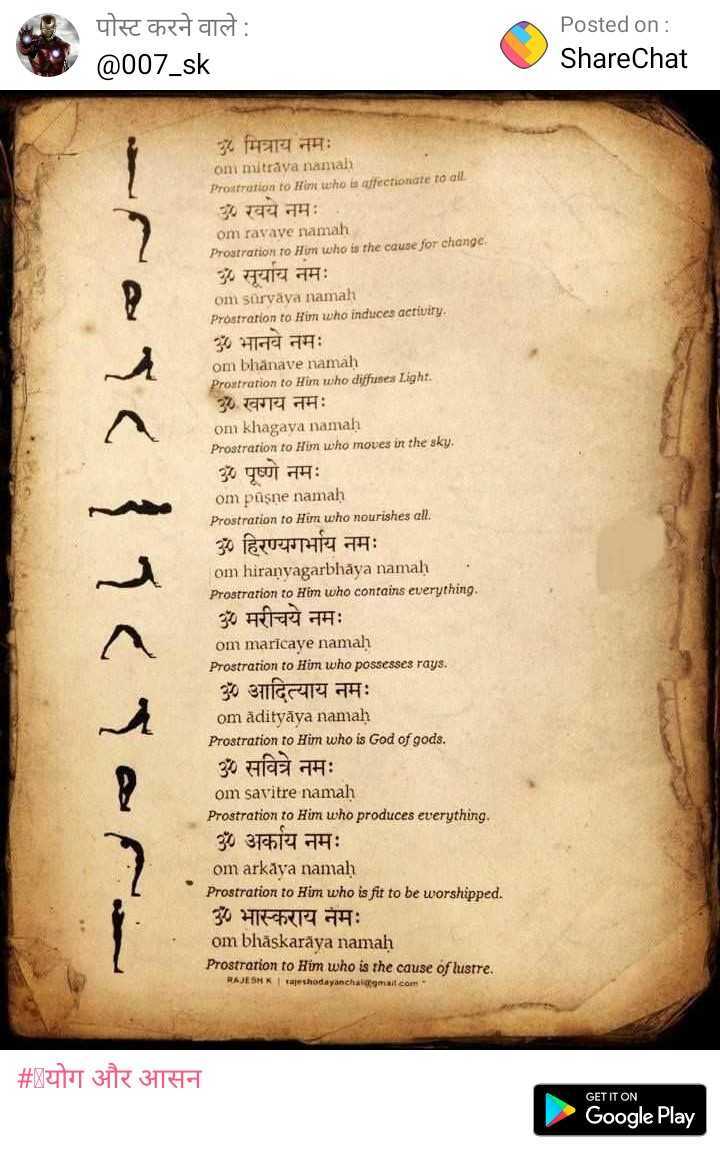 पोस्ट करने वाले :
@007_sk
Posted on :
ShareChat
ॐ मित्राय नमः
om mitrāya namaḥ
Prostration to Him who is affectionate to all.
ॐ रवये नमः
om ravaye namaḥ
Prostration to Him who is the cause for change.
ॐ सूर्याय नमः
om sūryāya namaḥ
Prostration to Him who induces activity.
ॐ भानवे नमः
om bhānave namaḥ
Prostration to Him who diffuses Light.
ॐ खगय नमः
om khagaya namaḥ
Prostration to Him who moves in the sky.
ॐ पूष्णे नमः
om pūṣṇe namaḥ
Prostration to Him who nourishes all.
ॐ हिरण्यगर्भाय नमः
om hiraṇyagarbhāya namaḥ
Prostration to Him who contains everything.
ॐ मरीचये नमः
om marīcaye namaḥ
Prostration to Him who possesses rays.
ॐ आदित्याय नमः
om ādityāya namaḥ
Prostration to Him who is God of gods.
ॐ सवित्रे नमः
om savitre namaḥ
Prostration to Him who produces everything.
ॐ अर्काय नमः
om arkāya namaḥ
Prostration to Him who is fit to be worshipped.
ॐ भास्कराय नमः
om bhāskarāya namaḥ
Prostration to Him who is the cause of lustre.
RAJESH K | rajeshodayanchal@gmail.com
#योग और आसन
GET IT ON
Google Play